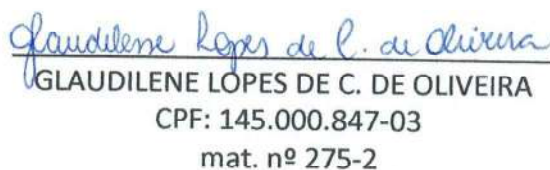 Glaudilene Lopes de C. de Oliveira
GLAUDILENE LOPES DE C. DE OLIVEIRA
CPF: 145.000.847-03
mat. nº 275-2